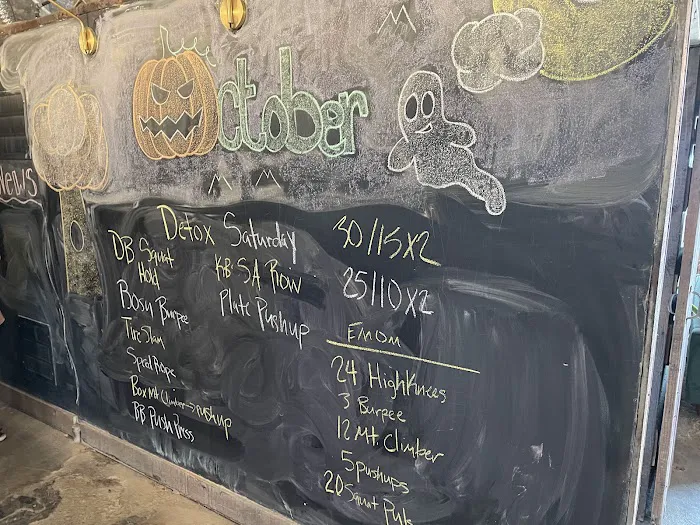 October
News
Detox Saturday
DB Squat
Hold
Bosu Burpee
Tire Slam
Speed Rope
Box Mt Climber → pushup
BB Push Press
KB SA Row
Plate Pushup
30/15 x2
25/10 x2
Emom
24 High Knees
3 Burpee
12 Mt. Climber
5 pushups
20 Squat Puls